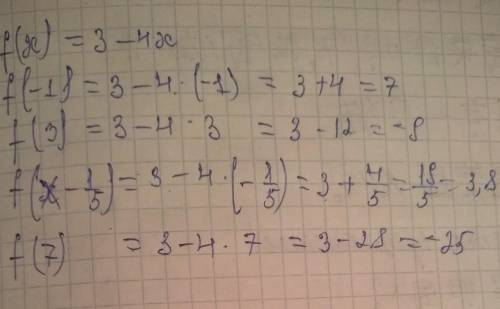 f(x) = 3 - 4x
f(-1) = 3 - 4 · (-1) = 3 + 4 = 7
f(3) = 3 - 4 · 3 = 3 - 12 = -9
f(-1/5) = 3 - 4 · (-1/5) = 3 + 4/5 = 19/5 = 3,8
f(7) = 3 - 4 · 7 = 3 - 28 = -25